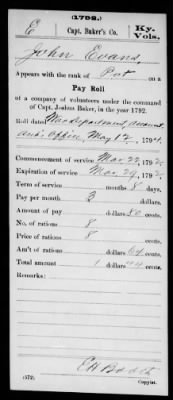 (1792.)
E Capt. Baker's Co. Ky. Vols.
John Evans,
Appears with the rank of Pvt. on a
Pay Roll
of a company of volunteers under the command
of Capt. Joshua Baker, in the year 1792.
Roll dated War department, Account.
Aud. Office, May 12, 1794.
Commencement of service Mar. 22, 1792.
Expiration of service Mar. 29, 1792.
Term of service months 8 days.
Pay per month 3 dollars
Amount of pay dollars 80 cents.
No. of rations 8
Price of rations 8 cents.
Am't of rations dollars 64 cents.
Total amount 1 dollars 44 cents.
Remarks:
E H Booth
(572) Copyist.